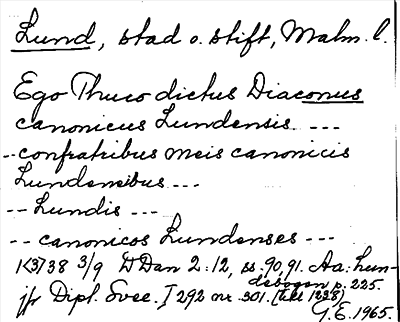 Lund, stad o. stift, Malm. l.
Ego Thuco dictus Diaconus
canonicus Lundensis ---
-- confratribus meis canonicis
Lundensibus ---
-- Lundis ---
-- canonicos Lundenses ---
1<3>38 3/9 D Dan 2:12, ss. 90, 91. Aa: Lun-
debogen p. 225.
jfr Dipl. Svec. I 292 nr. 301. (till 1238)
G.E. 1965.